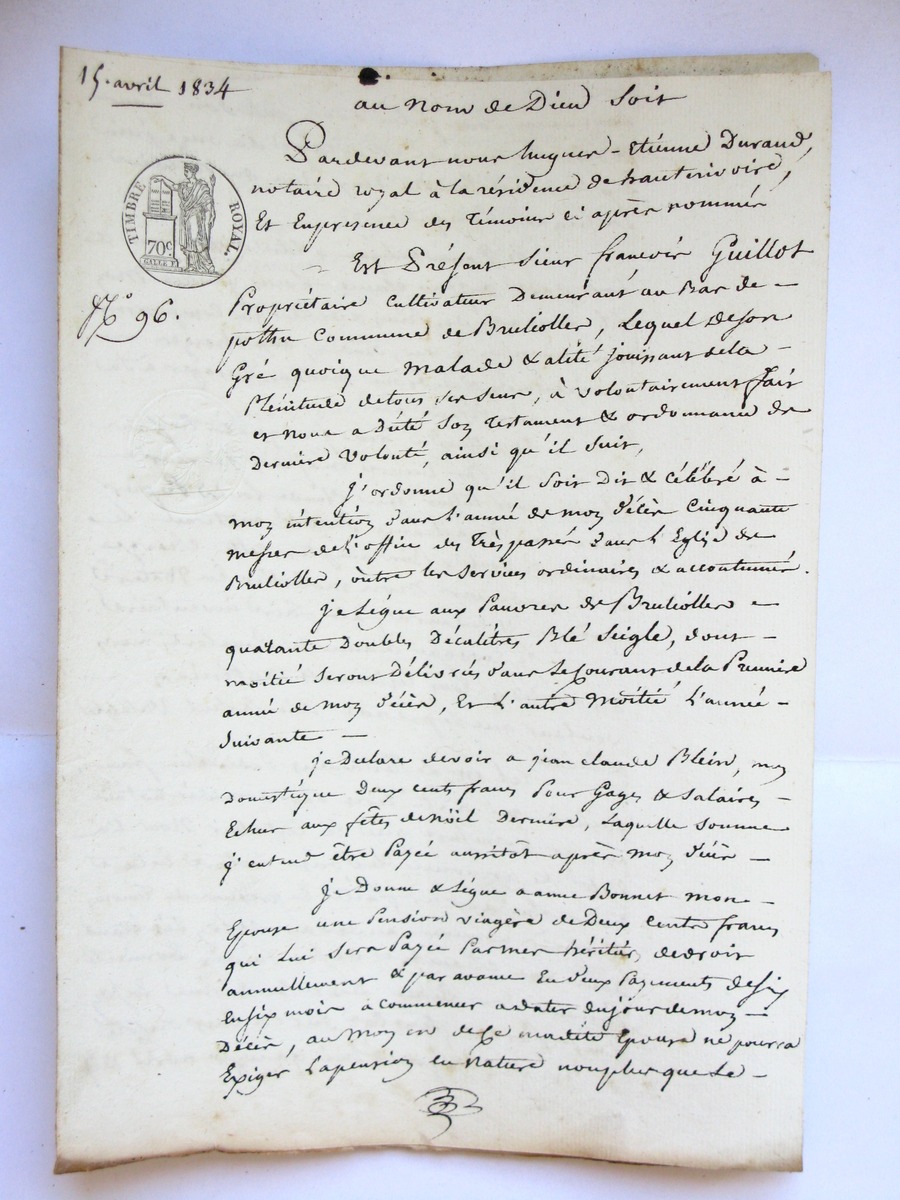 15. avril 1834
au nom de Dieu Soit
TIMBRE ROYAL.
70c
Pardevant nous hugues-Etienne Durand,
notaire royal à la résidence de hauterivoire,
Et En présence des Témoins ci après nommés
N° 96.
Est Présent Sieur françois Guillot
Propriétaire Cultivateur Demeurant au Bas de
Commune de Brulioller, Lequel de son
Gré quoique malade & alité jouissant de la
Plénitude de tous ses sens, à volontairement fait
et nous a Dicté Son Testament & ordonnance de
Dernière volonté, ainsi qu'il suit,
j'ordonne qu'il soit Dit & Célébré à
moy intention dans l'année de moy décès Cinquante
messes de l'office des Trépassés dans l'Eglise de
Brulioller, outre les services ordinaires & accoutumés.
je Lègue aux Pauvres de Brulioller
quarante Doubles Décalitres Blé Seigle, dont
moitié seront Délivrés dans le Courant de la Première
année de moy décès, Et l'autre Moitié L'année
suivante
je Déclare devoir a jean claude Blein, moy
Domestique Deux cents francs Pour Gages & Salaires
Echus aux fêtes de noël Dernière, Laquelle somme
j'entend être Payée aussitôt après moy décès
je Donne & Lègue a anne Bonnet mon
Epouse une Pension viagère de Deux cents francs
qui Lui Sera Payée Par mes héritiers de droit
annuellement & par avance En deux Payements de six
en six mois a commencer a dater du jour de moy
Décès, au moyen de Ce madite Epouse ne pourra
Exiger La pension en nature non plus que Le